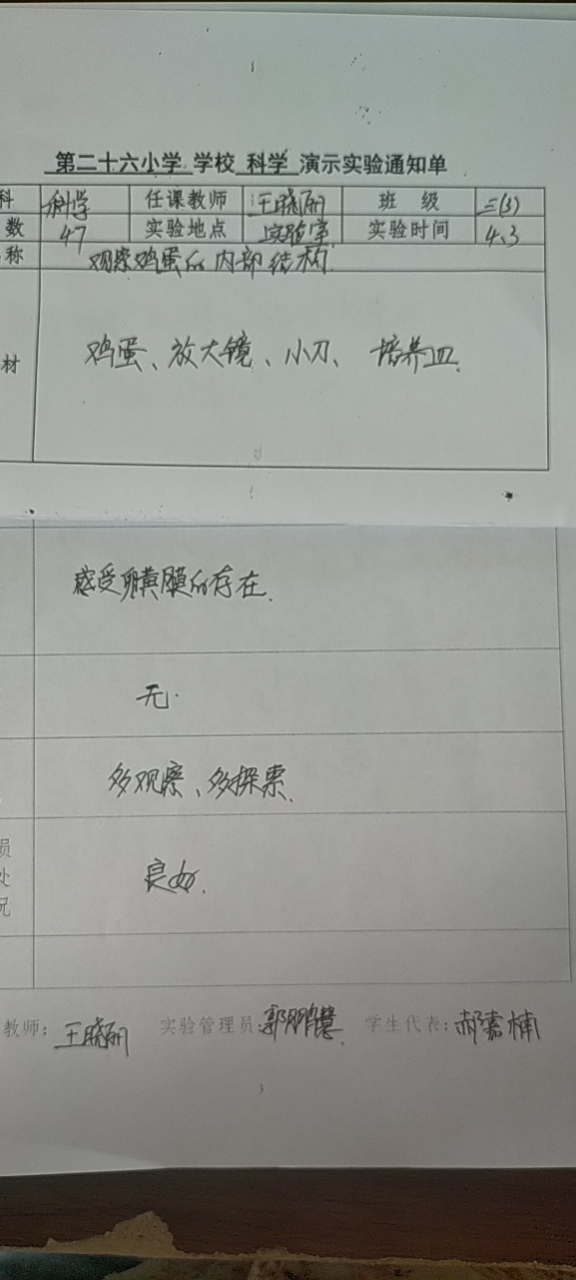 第二十六小学 学校 科学 演示实验通知单
科 科学 任课教师 王晓丽 班 级 三(3)
数 47 实验地点 实验室 实验时间 4.3
称 观察鸡蛋的内部结构.
材 鸡蛋、放大镜、小刀、培养皿.
感受卵黄膜的存在.
无.
多观察、多探索.
损
处
况
良好.
教师: 王晓丽 实验管理员: 郭鹏慧. 学生代表: 郝嘉楠
3